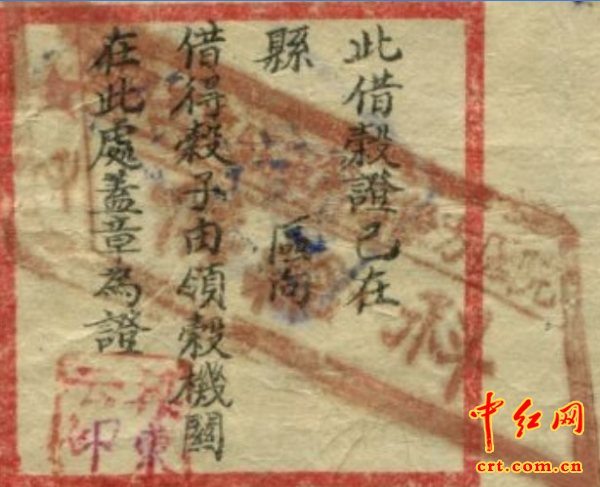 此借穀證已在
縣 區向
借得穀子由領穀機關
在此處蓋章為證
科
東
印
中红网
crt.com.cn